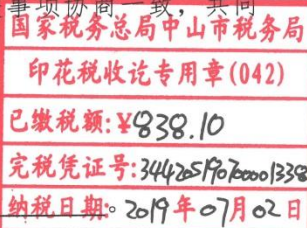 事项协商一致，共同
国家税务总局中山市税务局
印花税收讫专用章(042)
已缴税额:¥838.10
完税凭证号:344205190700001338
纳税日期:2019年07月02日